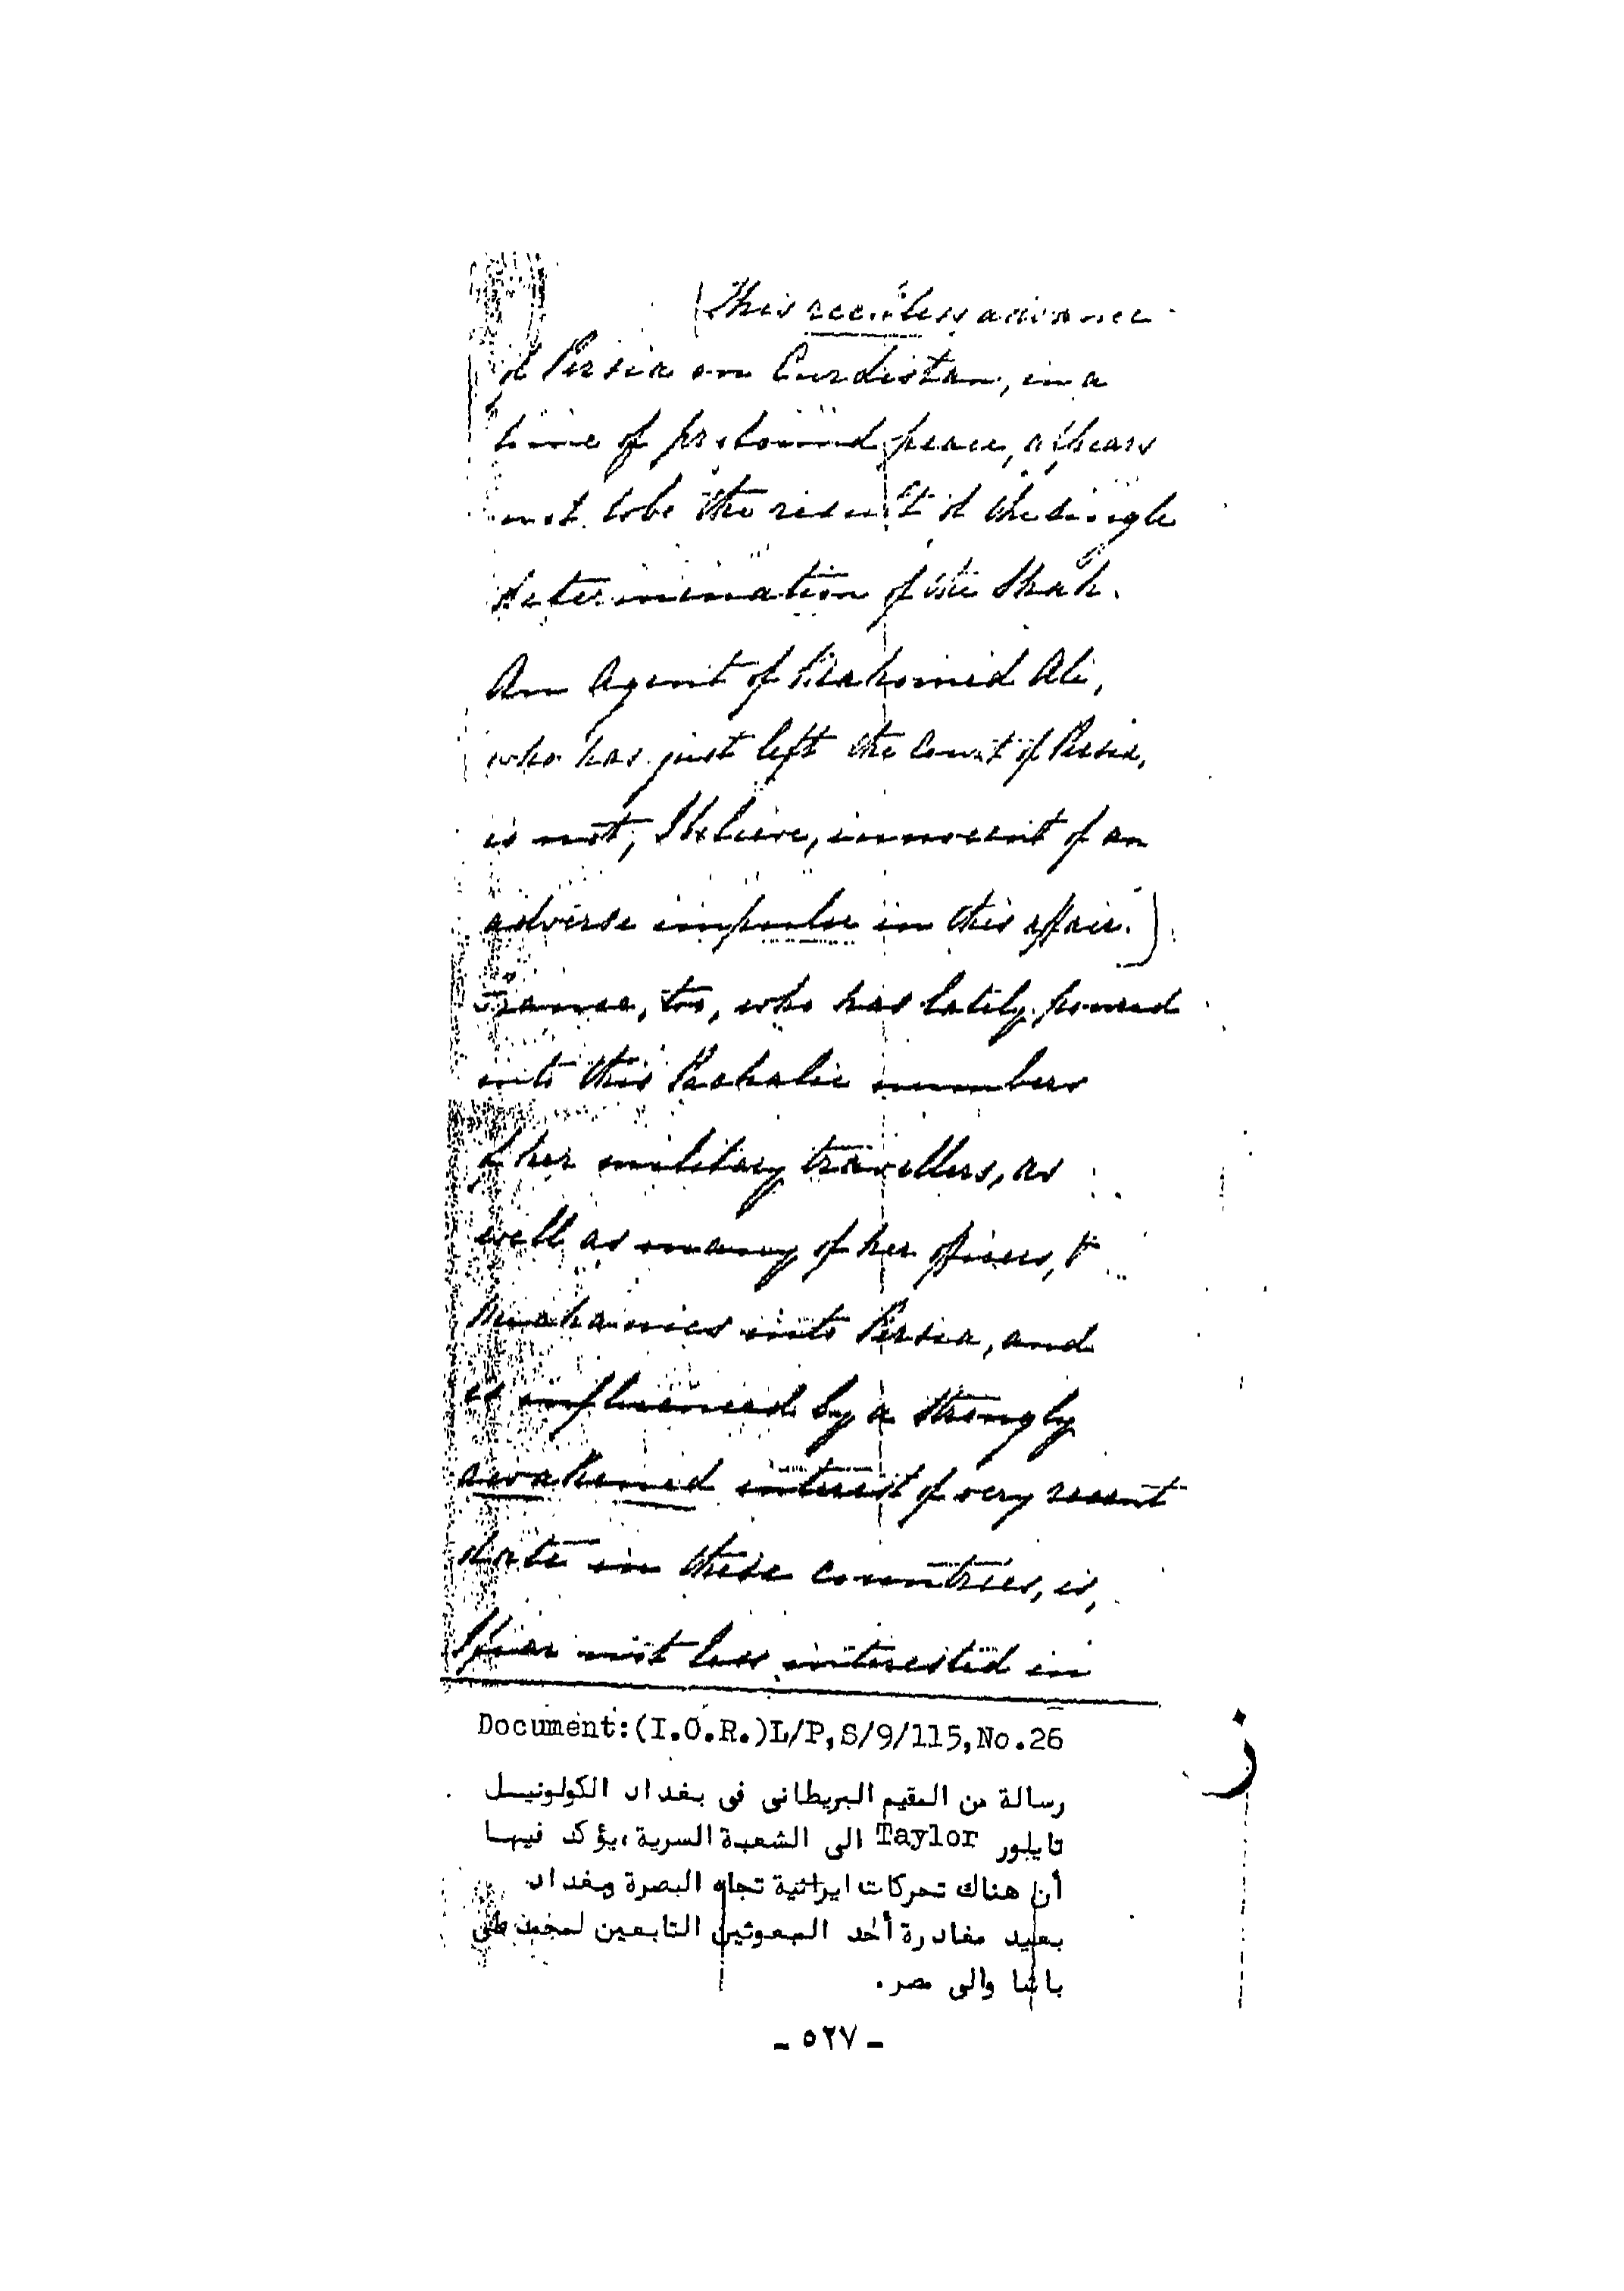 (This reckless advance
of Persia on Curdistan, in a
time of profound peace, appears
not to be the result of the single
determination of the Shah.
An Agent of Mahomed Ali,
who has just left the Court of Persia,
is not, I believe, innocent of an
adverse impulse in this affair.)
France, too, who has lately poured
into this Pachalic numbers
of her military travellers, as
well as many of her officers, &
Mechanics into Persia, and
is influenced by a strongly
awakened interest of very recent
date in these countries, is,
I fear not less interested in
Document:(I.O.R.)L/P,S/9/115,No.26
ز
رسالة من المقيم البريطانى فى بغداد الكولونيل
تايلور Taylor الى الشعبة السرية ،يؤكد فيها
أن هناك تحركات ايرانية تجاه البصرة وبغداد
بعيد مغادرة أحد المبعوثين التابعين لمحمد على
باشا والى مصر.
- ٥٢٧ -